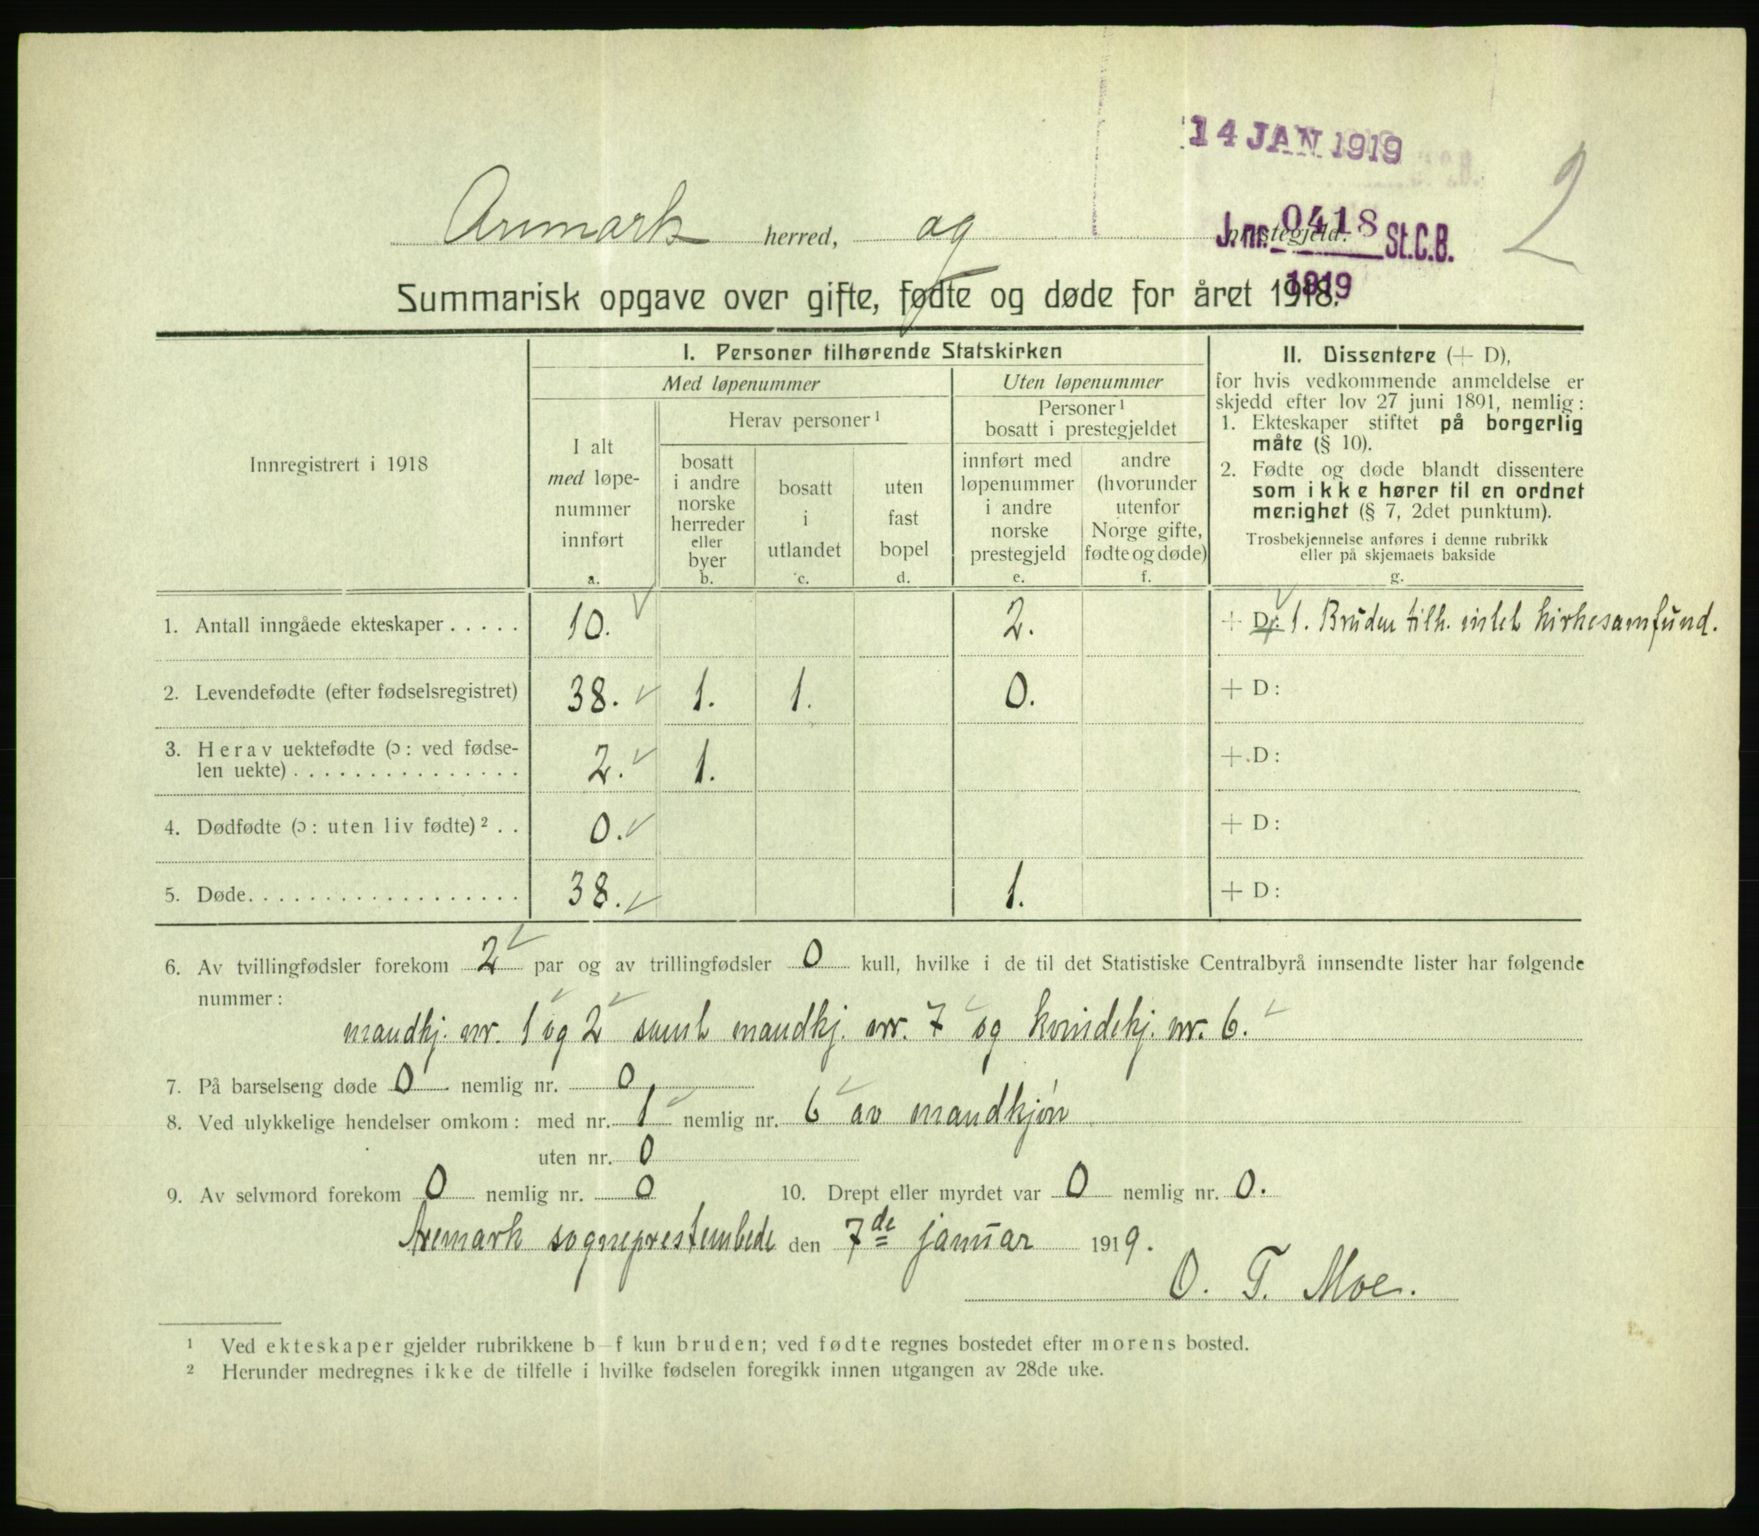 14 JAN 1919
2
Aremark herred, og prestegjeld.
J. nr. 0418 St.C.B.
1919
Summarisk opgave over gifte, fødte og døde for året 1918.
Innregistrert i 1918
I. Personer tilhørende Statskirken
Med løpenummer
Uten løpenummer
I alt
med løpe-
nummer
innført
a.
Herav personer 1
bosatt
i andre
norske
herreder
eller
byer
b.
bosatt
i
utlandet
c.
uten
fast
bopel
d.
Personer 1
bosatt i prestegjeldet
innført med
løpenummer
i andre
norske
prestegjeld
e.
andre
(hvorunder
utenfor
Norge gifte,
fødte og døde)
f.
II. Dissentere (+ D),
for hvis vedkommende anmeldelse er
skjedd efter lov 27 juni 1891, nemlig:
1. Ekteskaper stiftet på borgerlig
måte (§ 10).
2. Fødte og døde blandt dissentere
som ikke hører til en ordnet
menighet (§ 7, 2det punktum).
Trosbekjennelse anføres i denne rubrikk
eller på skjemaets bakside
g.
1. Antall inngåede ekteskaper . . . . . 10. 2. + D: 1. Bruden tilh. intet kirkesamfund.
2. Levendefødte (efter fødselsregistret) 38. 1. 1. 0. + D:
3. Herav uektefødte (ɔ: ved fødse-
len uekte) . . . . . . . . . . . . . . . 2. 1. + D:
4. Dødfødte (ɔ: uten liv fødte) 2 . . 0. + D:
5. Døde. . . . . . . . . . . . . . . . . . 38. 1. + D:
6. Av tvillingfødsler forekom 2 par og av trillingfødsler 0 kull, hvilke i de til det Statistiske Centralbyrå innsendte lister har følgende
nummer:
mandkj. nr. 1 og 2 samt mandkj. nr. 7 og kvindekj. nr. 6.
7. På barselseng døde 0 nemlig nr. 0
8. Ved ulykkelige hendelser omkom: med nr. 1 nemlig nr. 6 av mandkjøn
uten nr. 0
9. Av selvmord forekom 0 nemlig nr. 0 10. Drept eller myrdet var 0 nemlig nr. 0.
Aremark sogneprestembede den 7de januar 1919.
O. T. Moe.
1 Ved ekteskaper gjelder rubrikkene b–f kun bruden; ved fødte regnes bostedet efter morens bosted.
2 Herunder medregnes ikke de tilfelle i hvilke fødselen foregikk innen utgangen av 28de uke.